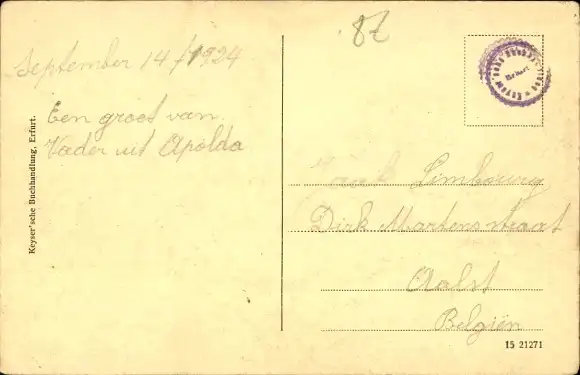 82
September 14/1924
Een groet van
Vader uit Apolda
Keyser'sche Buchhandlung, Erfurt.
Erfurt
Limbourg
Dirk Martensstraat
Aalst
Belgiën
15 21271